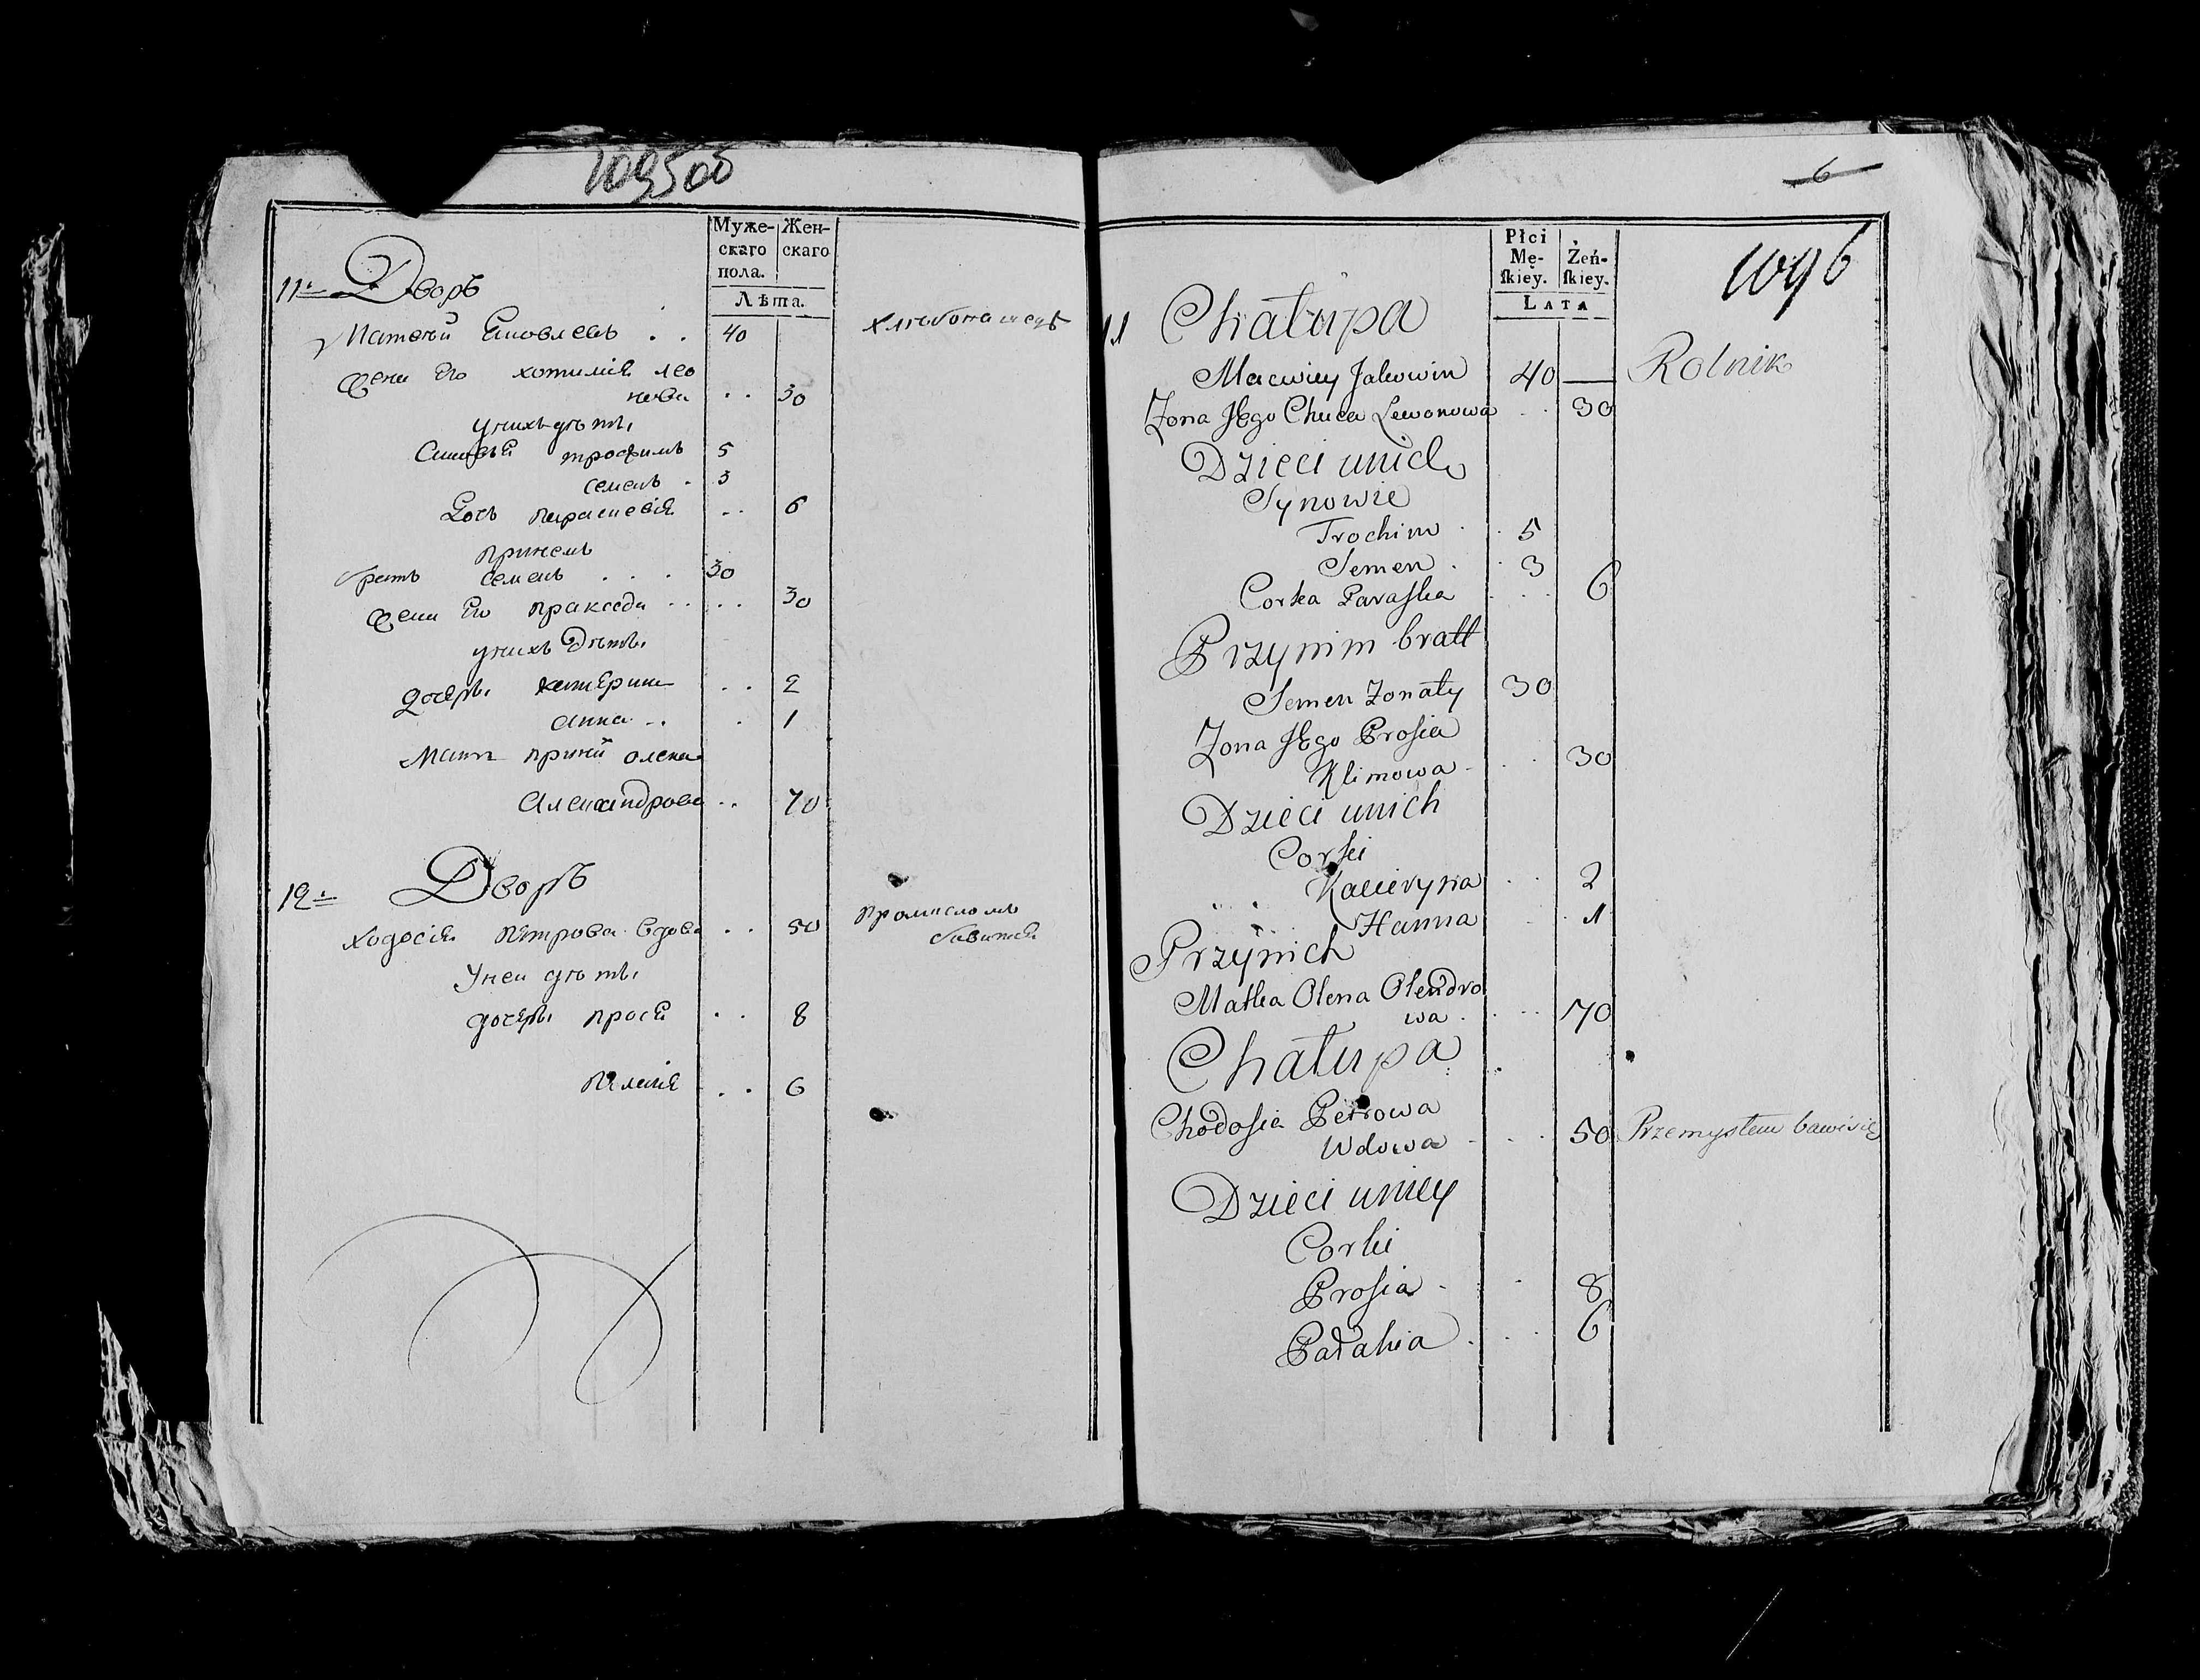 1095об
Муже-
скаго
пола.
Жен-
скаго
Лѣта.
11. Дворъ
Матвей Яковлевъ . . 40
хлѣбопашецъ
Жена Его хотимія лео
нова . . 30
унихъ дѣти
Сыновья трофимъ 5
семенъ . 3
Дочь параскевія . . 6
принемъ
братъ семенъ . . . 30
Жена Его праксѣда . . . . 30
унихъ Дѣти
дочери катерина . . 2
анна . . . 1
Мать приних олена
Александрова . . 70
12. Дворъ
Ходосія петрова вдова . . 50
промысломъ
бавится
Унеи дѣти
дочери прося . . 8
пелагия . . 6
6
1096
Płci
Mę-
skiey.
Żeń-
skiey.
Lata
11 Chałupa
Rolnik
Maciey Jakowiw 40 —
Zona Jego Lewonowa . . 30
Dzieci unich
Synowie
Trochim . . 5
Semen . . 3
Corka Paraska . . . 6
Przynim bratt
Semen Zonaty 30
Zona Jego Prosia
Klimowa . . . 30
Dzieci unich
Corki
Kacieryna . . 2
Hanna . . 1
Przynich
Matka Olena Olexdro
wa . . . . 70
Chałupa
Chodosia Petrowa
Wdowa . . . 50 Przemysłem bawi się
Dzieci uniey
Corki
Prosia . . 8
Pałahia . . . 6